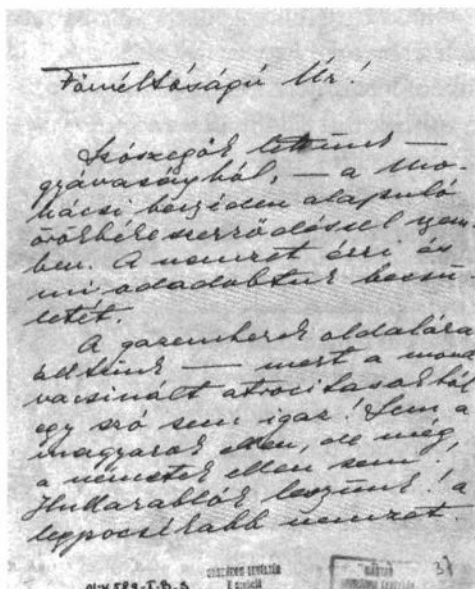 Főméltóságú Úr!
Szószegők lettünk —
gyávaságból, — a mo-
hácsi beszéden alapuló
örökbéke szerződéssel szem-
ben. A nemzet érzi és
mi odadobtuk becsü-
letét.
A gazemberek oldalára
álltunk — mert a mond
vacsinált atrocitásokból
egy szó sem igaz! Sem a
magyarok ellen, de még
a németek ellen sem!
Hullarablók leszünk! a
legpocsékabb nemzet.
37